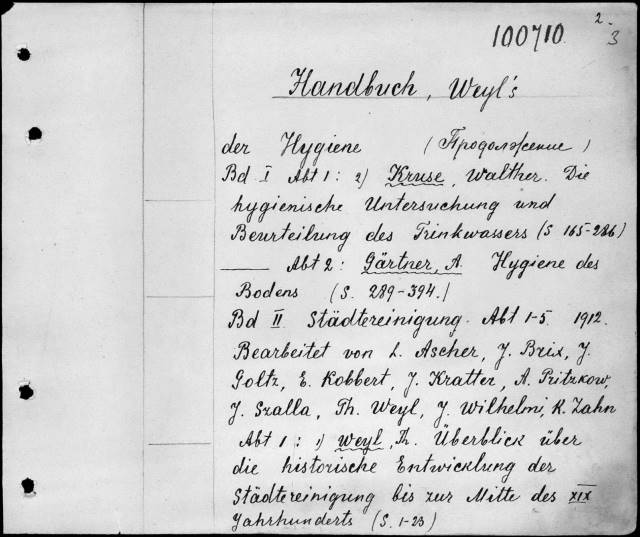 100710. 2.
3
Handbuch, Weyl's
der Hygiene (Продолжение)
Bd I Abt 1: 2) Kruse, Walther. Die
hygienische Untersuchung und
Beurteilung des Trinkwassers (S 165-286)
—— Abt 2: Gärtner, A. Hygiene des
Bodens (S. 289-394.)
Bd II Städtereinigung. Abt 1-5. 1912.
Bearbeitet von L. Ascher, J. Brix, J.
Goltz, E. Kobbert, J. Kratter, A. Pritzkow,
J. Szalla, Th. Weyl, J. Wilhelmi, K. Zahn
Abt 1: 1) Weyl, Th. Überblick über
die historische Entwicklung der
Städtereinigung bis zur Mitte des XIX
Jahrhunderts (S. 1-23)